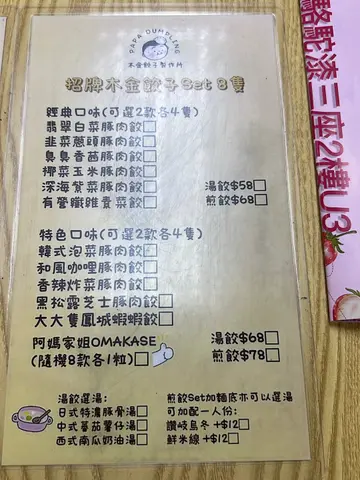 PAPA DUMPLING
木金餃子製作所
招牌木金餃子Set 8隻
經典口味(可選2款各4隻)
翡翠白菜豚肉餃□
韭菜蔥頭豚肉餃□
臭臭香茜豚肉餃□
椰菜玉米豚肉餃□
深海紫菜豚肉餃□ 湯餃$58□
有營纖雜素菜餃□ 煎餃$68□
特色口味(可選2款各4隻)
韓式泡菜豚肉餃□
和風咖哩豚肉餃□
香辣炸菜豚肉餃□
黑松露芝士豚肉餃□
大大隻鳳城蝦餃□
阿媽家姐OMAKASE 湯餃$68□
(隨機8款各1粒)□ 煎餃$78□
湯餃選湯:
日式特濃豚骨湯□
中式蕃茄薯仔湯□
西式南瓜奶油湯□
煎餃Set加麵底亦可以選湯
可加配一人份:
讚岐烏冬 +$12□
鮮米線 +$12□
駱駝漆三座2樓U3